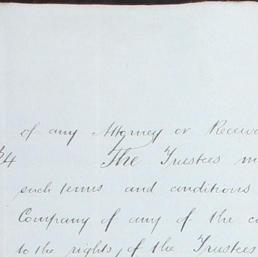 of any Attorney or Receiv
24 The Trustees m
such terms and conditions
Company of any of the c
to the rights, of the Trustees